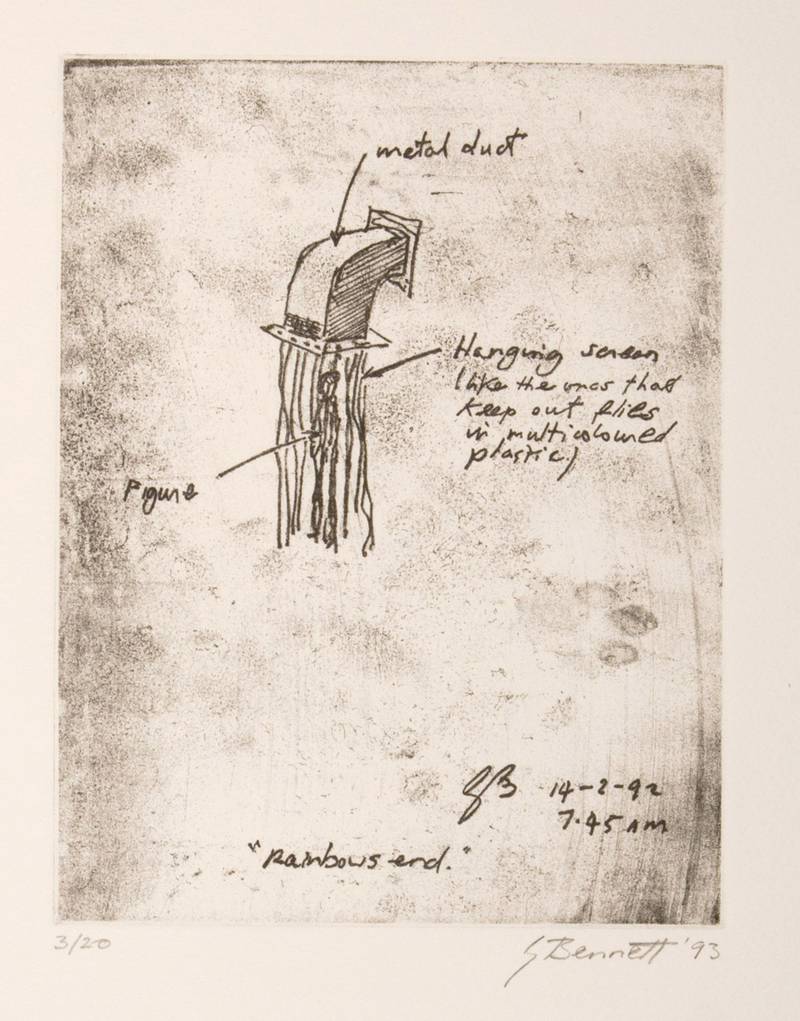 metal duct
Hanging screen
(like the ones that
keep out flies
in multicoloured
plastic)
Figure
GB 14-2-92
7.45 AM
"Rainbows end."
3/20
G Bennett '93